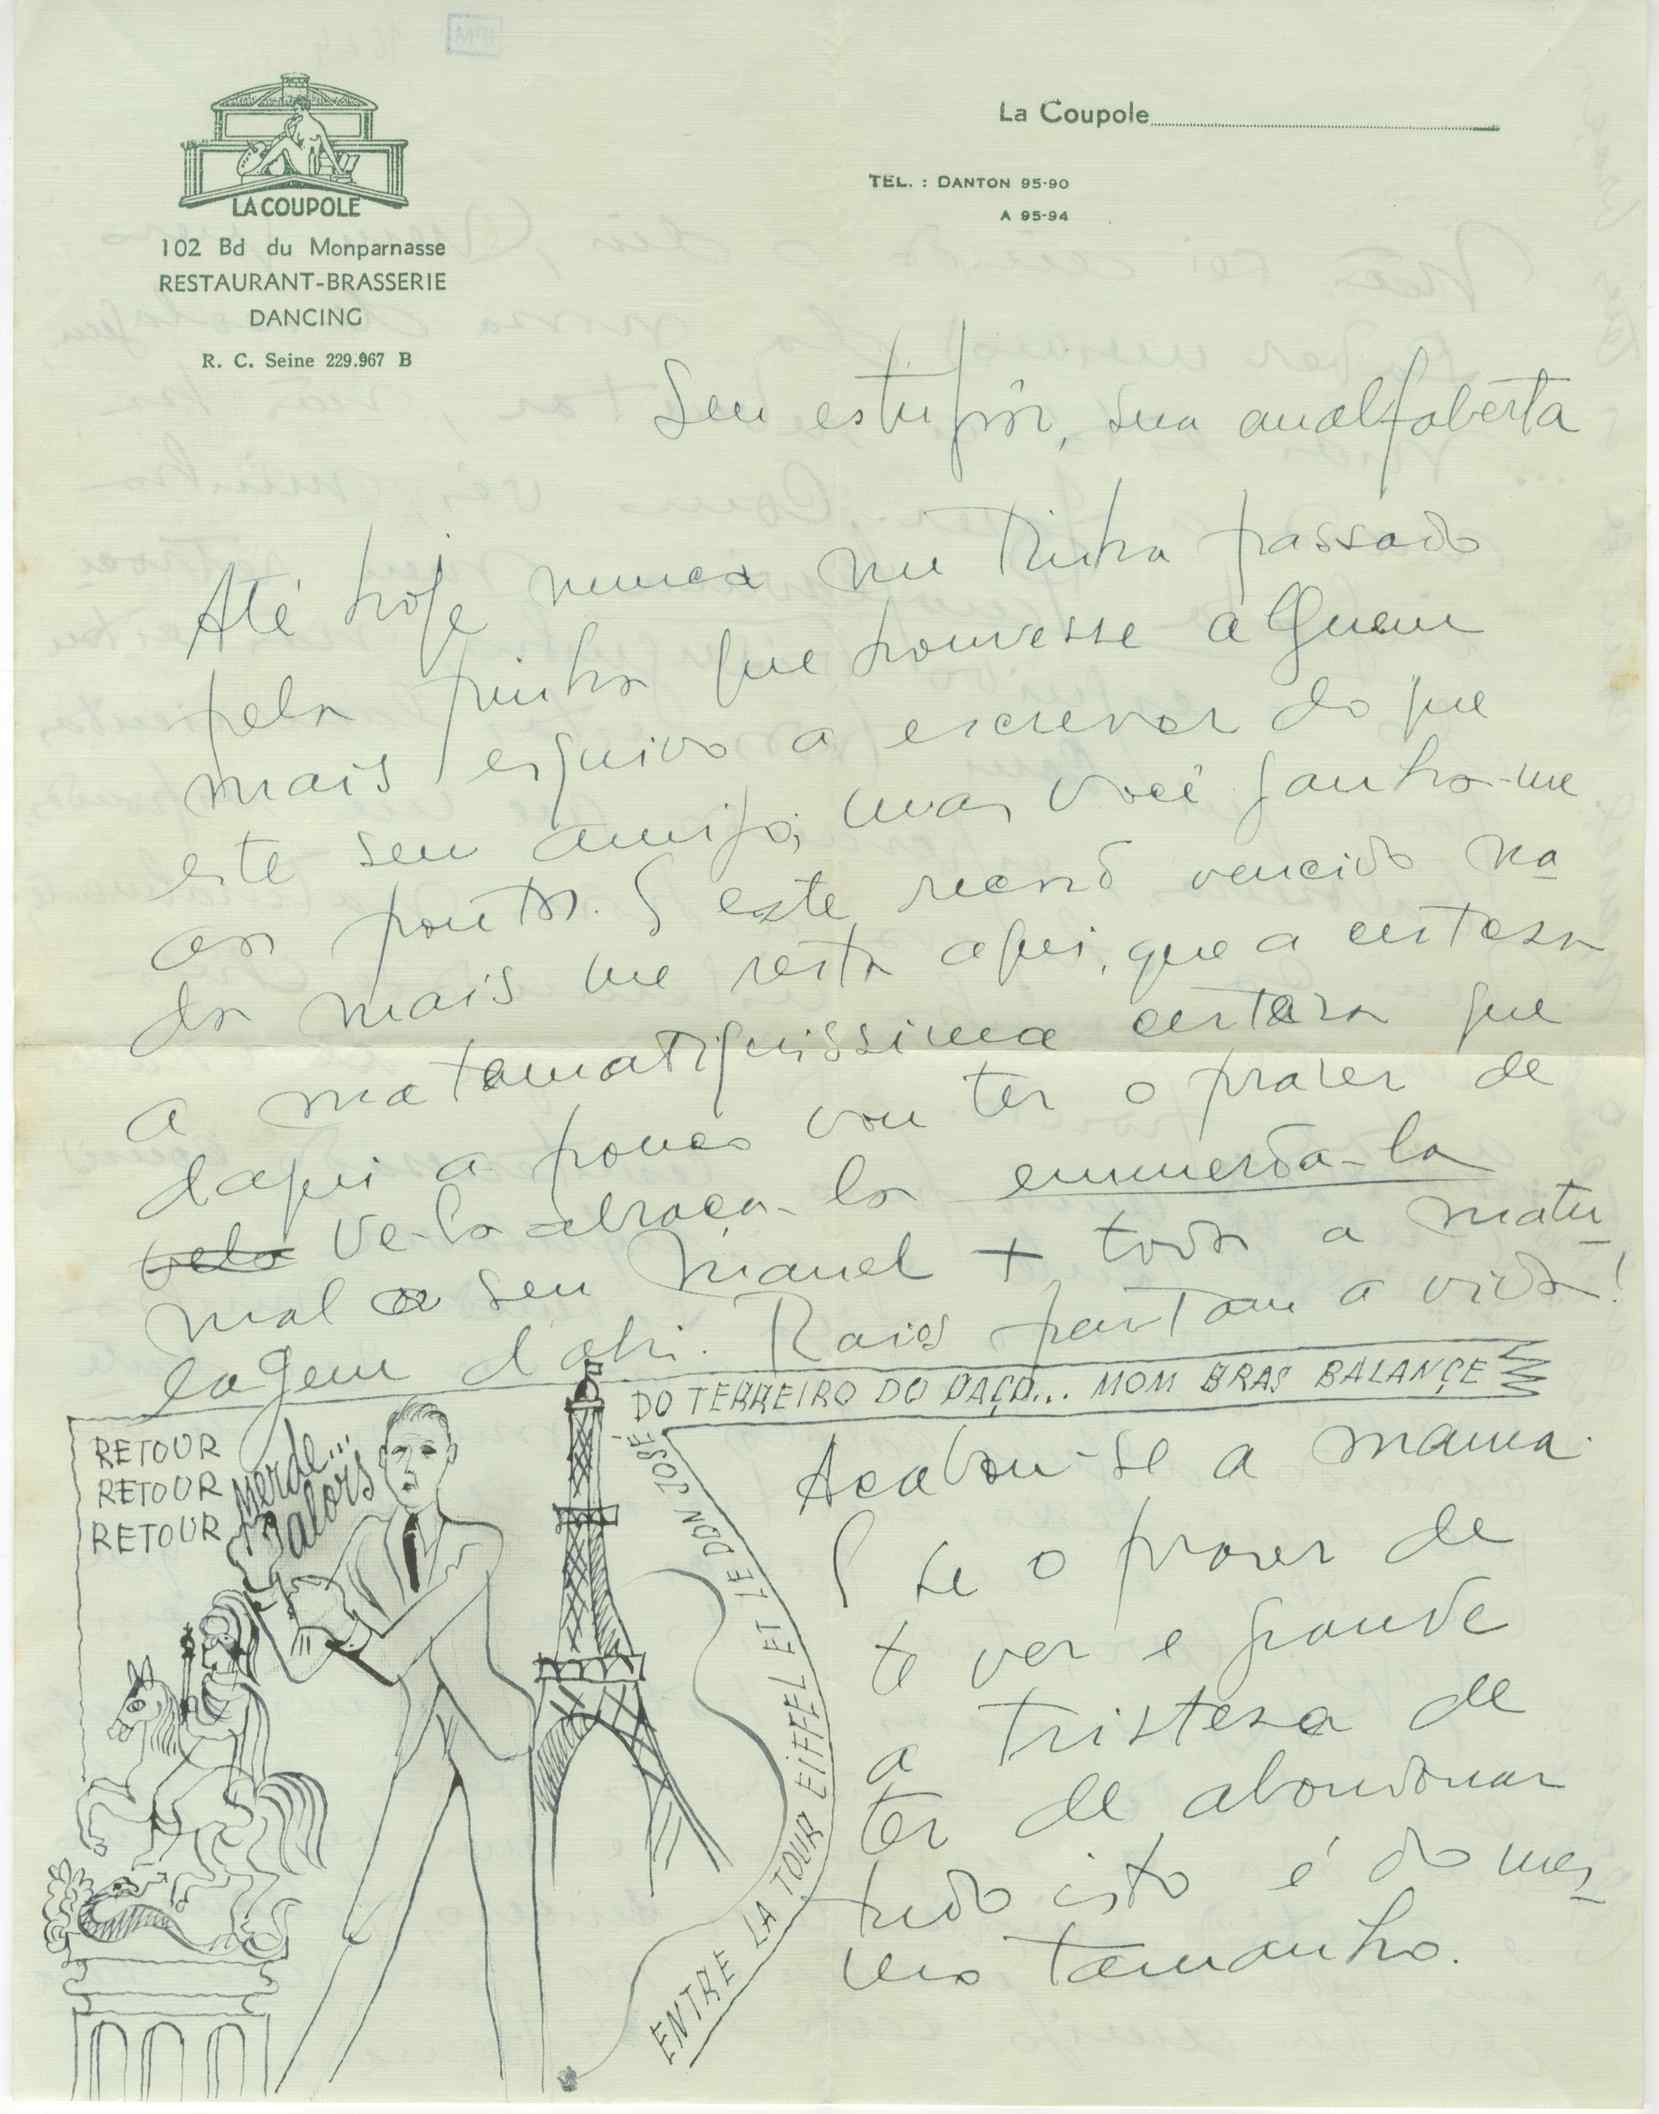 La Coupole
TEL. : DANTON 95-90
A 95-94
LA COUPOLE
102 Bd du Monparnasse
RESTAURANT-BRASSERIE
DANCING
R. C. Seine 229.967 B
Seu estupôr, sua analfaberta
Até hoje nunca me tinha passado
pela pinha que houvesse alguem
mais esquivo a escrever do que
este seu amigo; mas você ganha-me
aos pontos. E este recorđ vencido na
da mais me resta aqui, que a certeza
a matematiquissima certeza que
daqui a pouco vou ter o prazer de
vela ve-la abraça-la emmerda-la
mal o seu Manel + toda a matu
lagem d'ahi. Raios partam a vida!
DO TERREIRO DO PAÇO... MOM BRAS BALANÇE
RETOUR
RETOUR
RETOUR
Merde...
Valois
ENTRE LA TOUR EIFFEL ET LE DON JOSÉ
Acabou-se a mama.
E se o prazer de
te ver e grande
a tristeza de
ter de abandonar
tudo isto é do mes
mo tamanho.